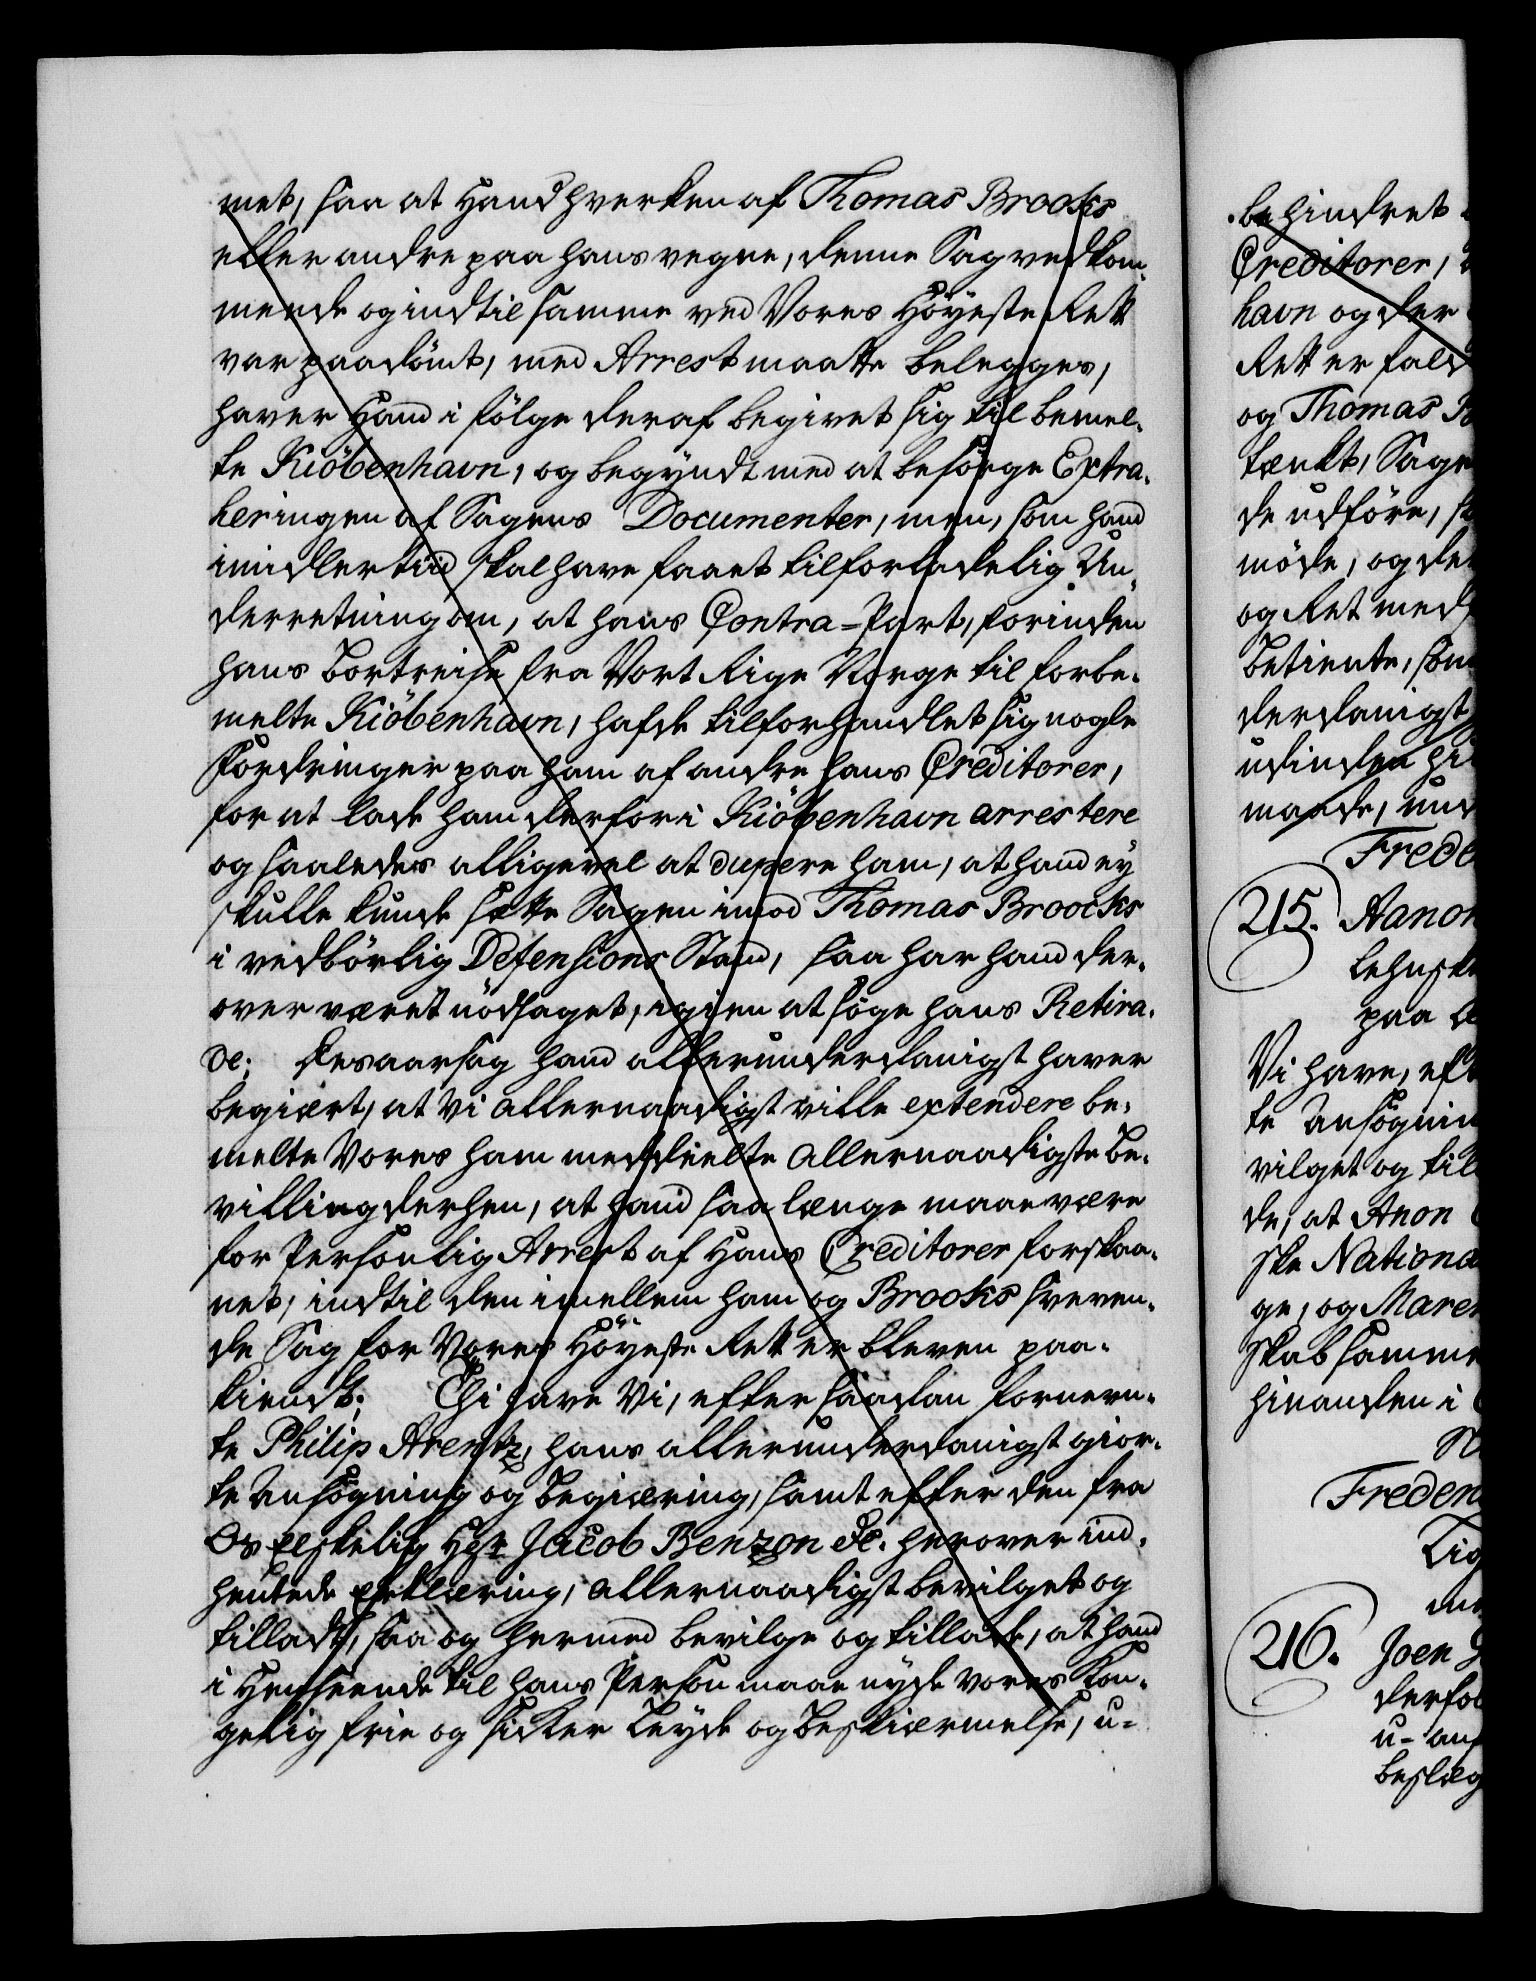 met, saa at Hand hverken af Thomas Brooks
eller andre paa hans vegne, denne Sag vedkom-
mende og indtil samme ved Vores Höyeste Rett
var paadömt, med Arrest maatte belegges,
haver Hand i fölge deraf begivet sig til bemel-
te Kiöbenhavn, og begyndt med at besörge Extra-
heringen af Sagens Documenter, men, som hand
imidlertid skal have faaet tilforladelig Un-
derretning om, at hans Contra-Part, forinden
hans bortreise fra Vort Rige Norge til forbe-
melte Kiöbenhavn, hafde tilforhandlet sig nogle
Fordringer paa ham af andre hans Creditorer,
for at lade ham derfor i Kiöbenhavn arrestere
og saaledes alligevel at dupere ham, at hand ey
skulle kunde sette Sagen imod Thomas Broocks
i vedbörlig Defensions Stand, saa har hand der-
over været nödsaget, igien at söge hans Retira-
de; desaarsag hand allerunderdanigst haver
begiært, at Vi allernaadigst ville extendere be-
melte Vores ham meddeelte allernaadigste Be-
villing derhen, at hand saa længe maae være
for Personlig Arrest af Hans Creditorer forskaa-
net, indtil den imellem ham og Brooks sveven-
de Sag for Vores Höyeste Rett er bleven paa-
kiendt; Thi have Vi, efter saadan fornevn-
te Philip Arentz, hans allerunderdanigst gior-
te Ansögning og Begiæring, samt efter den fra
Os Elskelig Hr Jacob Benzon &c. herover ind-
hentede Erklæring, allernaadigst bevilget og
tilladt, saa og hermed bevilge og tillade, at hand
i Henseende til hans Person maae nyde vores Kon-
gelig frie og sicker Leyde og Beskiærmelse, u-
behindret
Creditorer,
havn og der
Rett er fald
og Thomas
tænkt, Sage
de udföre,
möde, og de
og Ret med
betiente, som
derdanigst
udinden hi
maade, und
Frede
215. Aanon
lehnske
paa
Vi have, eft
te Ansögnin
vilget og till
de, at Anon
ske Nationa
ge, og Maren
skab samme
hinanden i
Freden
Lig
216. Joen
derfor
u-
beslæg